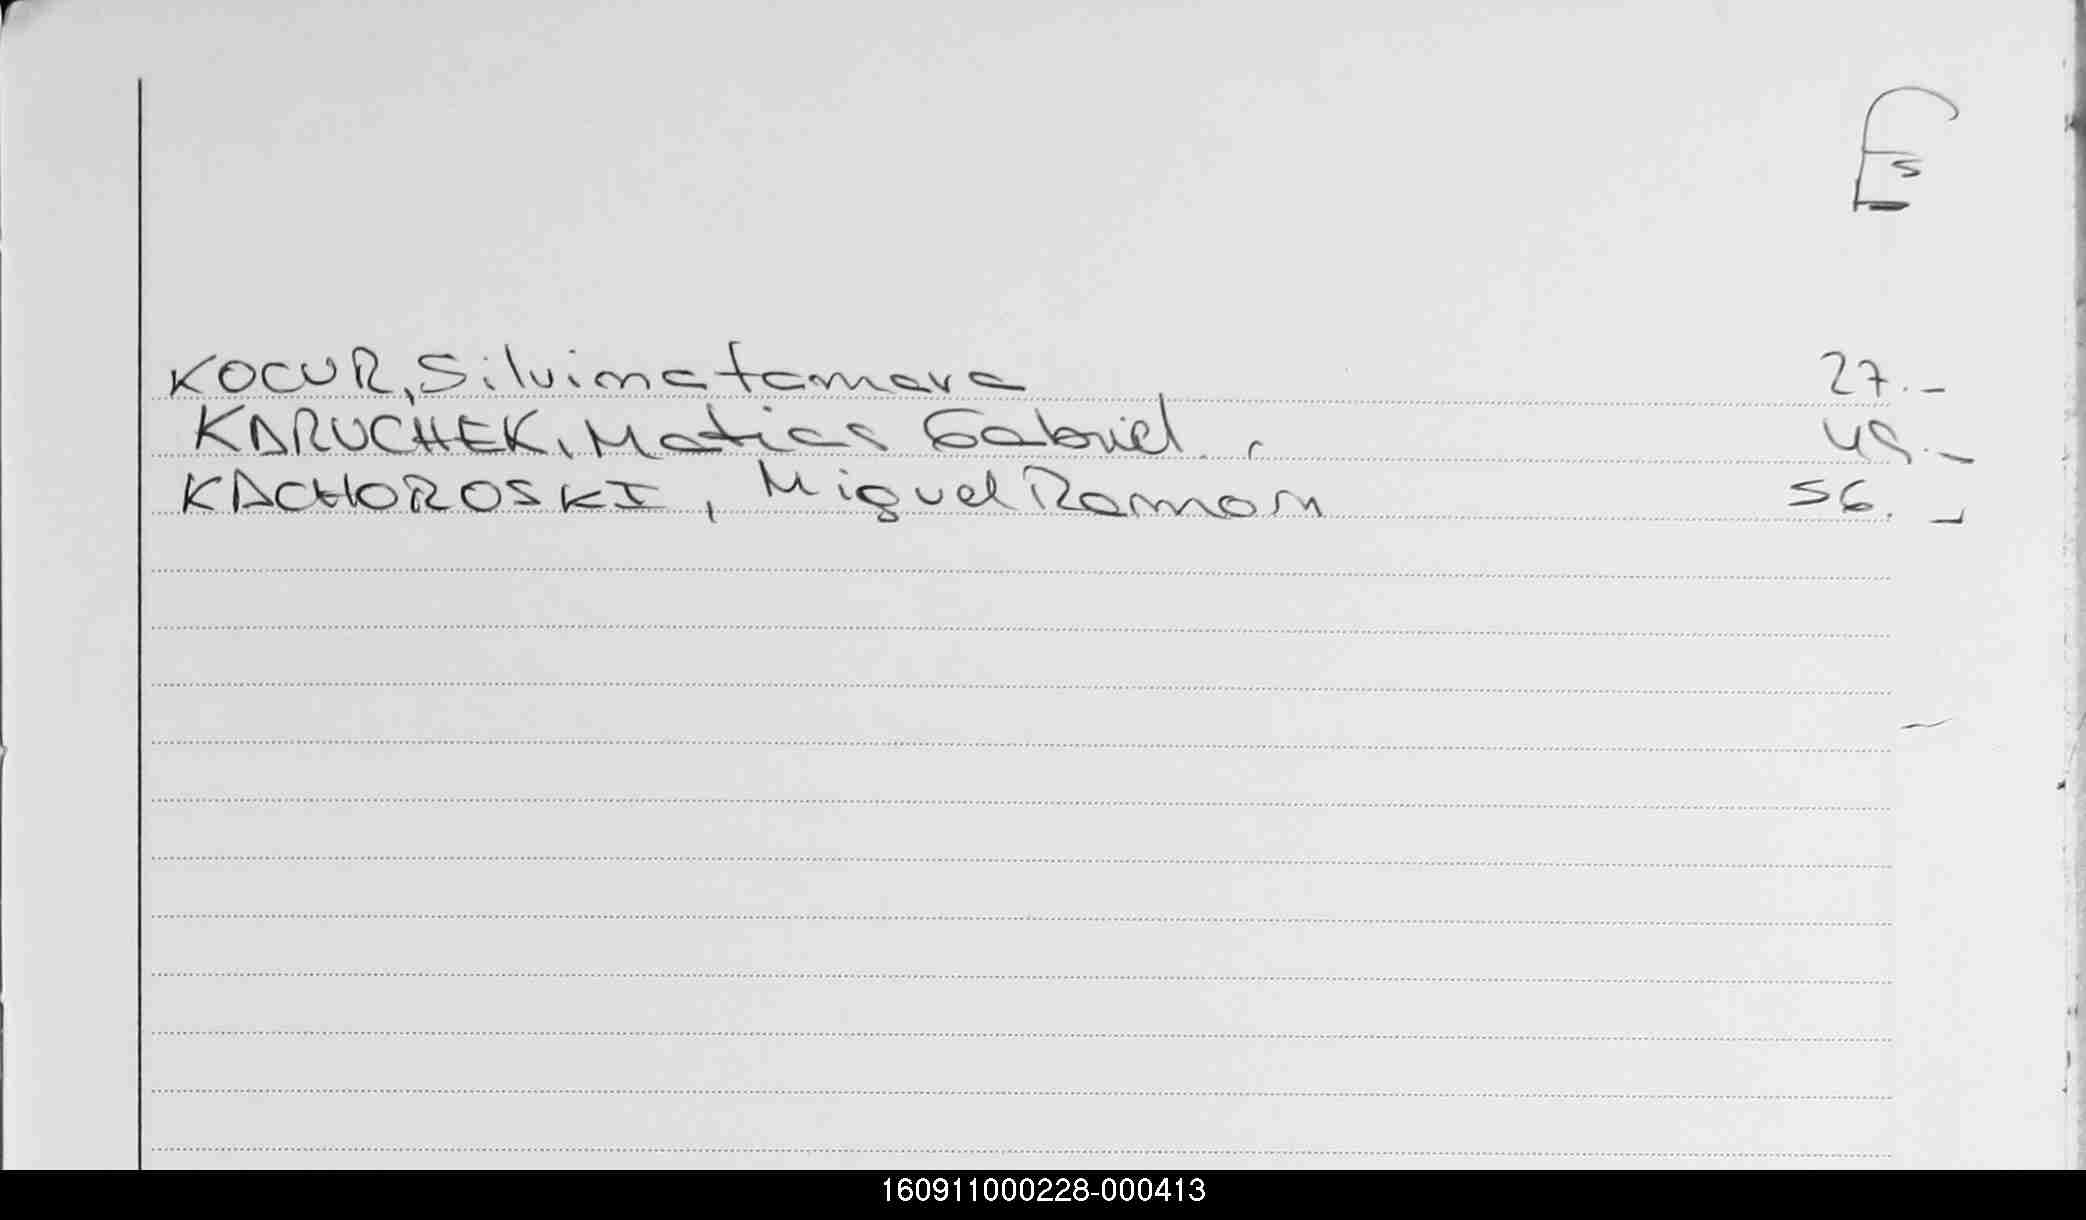 Fs
KOCUR, Silvina tamara 27.-
KARUCHEK, Matias Gabriel. 49.-
KACHOROSKI, Miguel Ramon 56. -
160911000228-000413